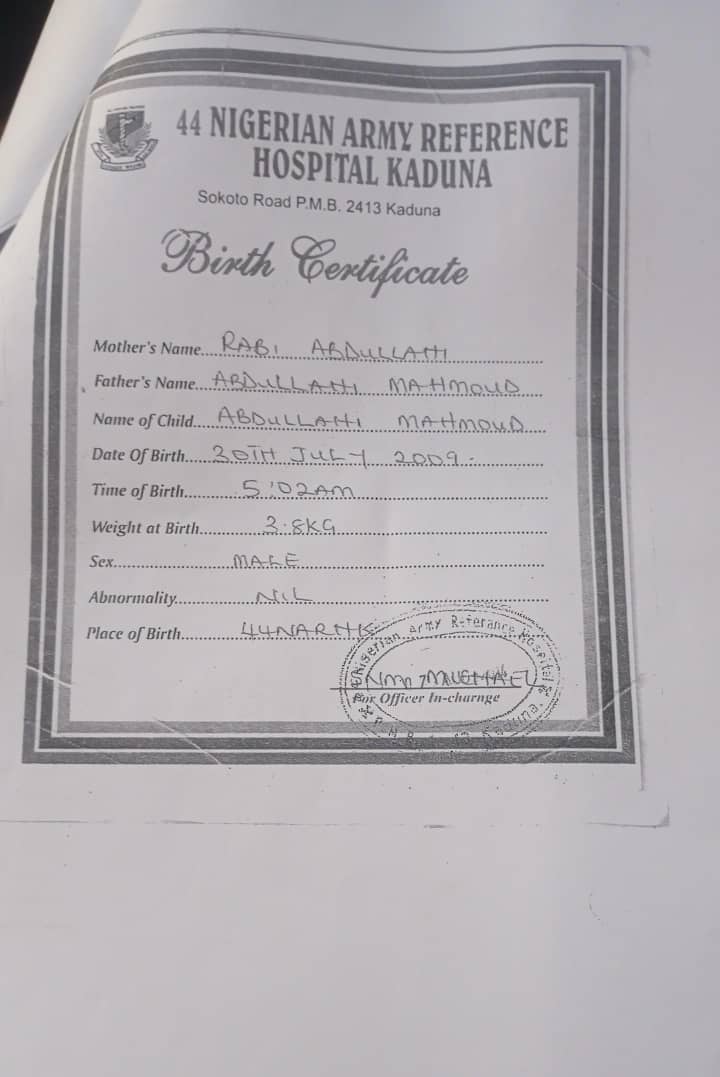 44 NIGERIAN ARMY REFERENCE
HOSPITAL KADUNA
Sokoto Road P.M.B. 2413 Kaduna
Birth Certificate
Mother's Name...RABI ABDULLAHI
Father's Name...ABDULLAHI MAHMOUD
Name of Child...ABDULLAHI MAHMOUD
Date Of Birth...30TH JULY 2009.
Time of Birth...5:02AM
Weight at Birth...3.8KG
Sex...MALE
Abnormality...NIL
Place of Birth...44NARHK
Nigerian Army Reference Hospital
For Officer In-charnge